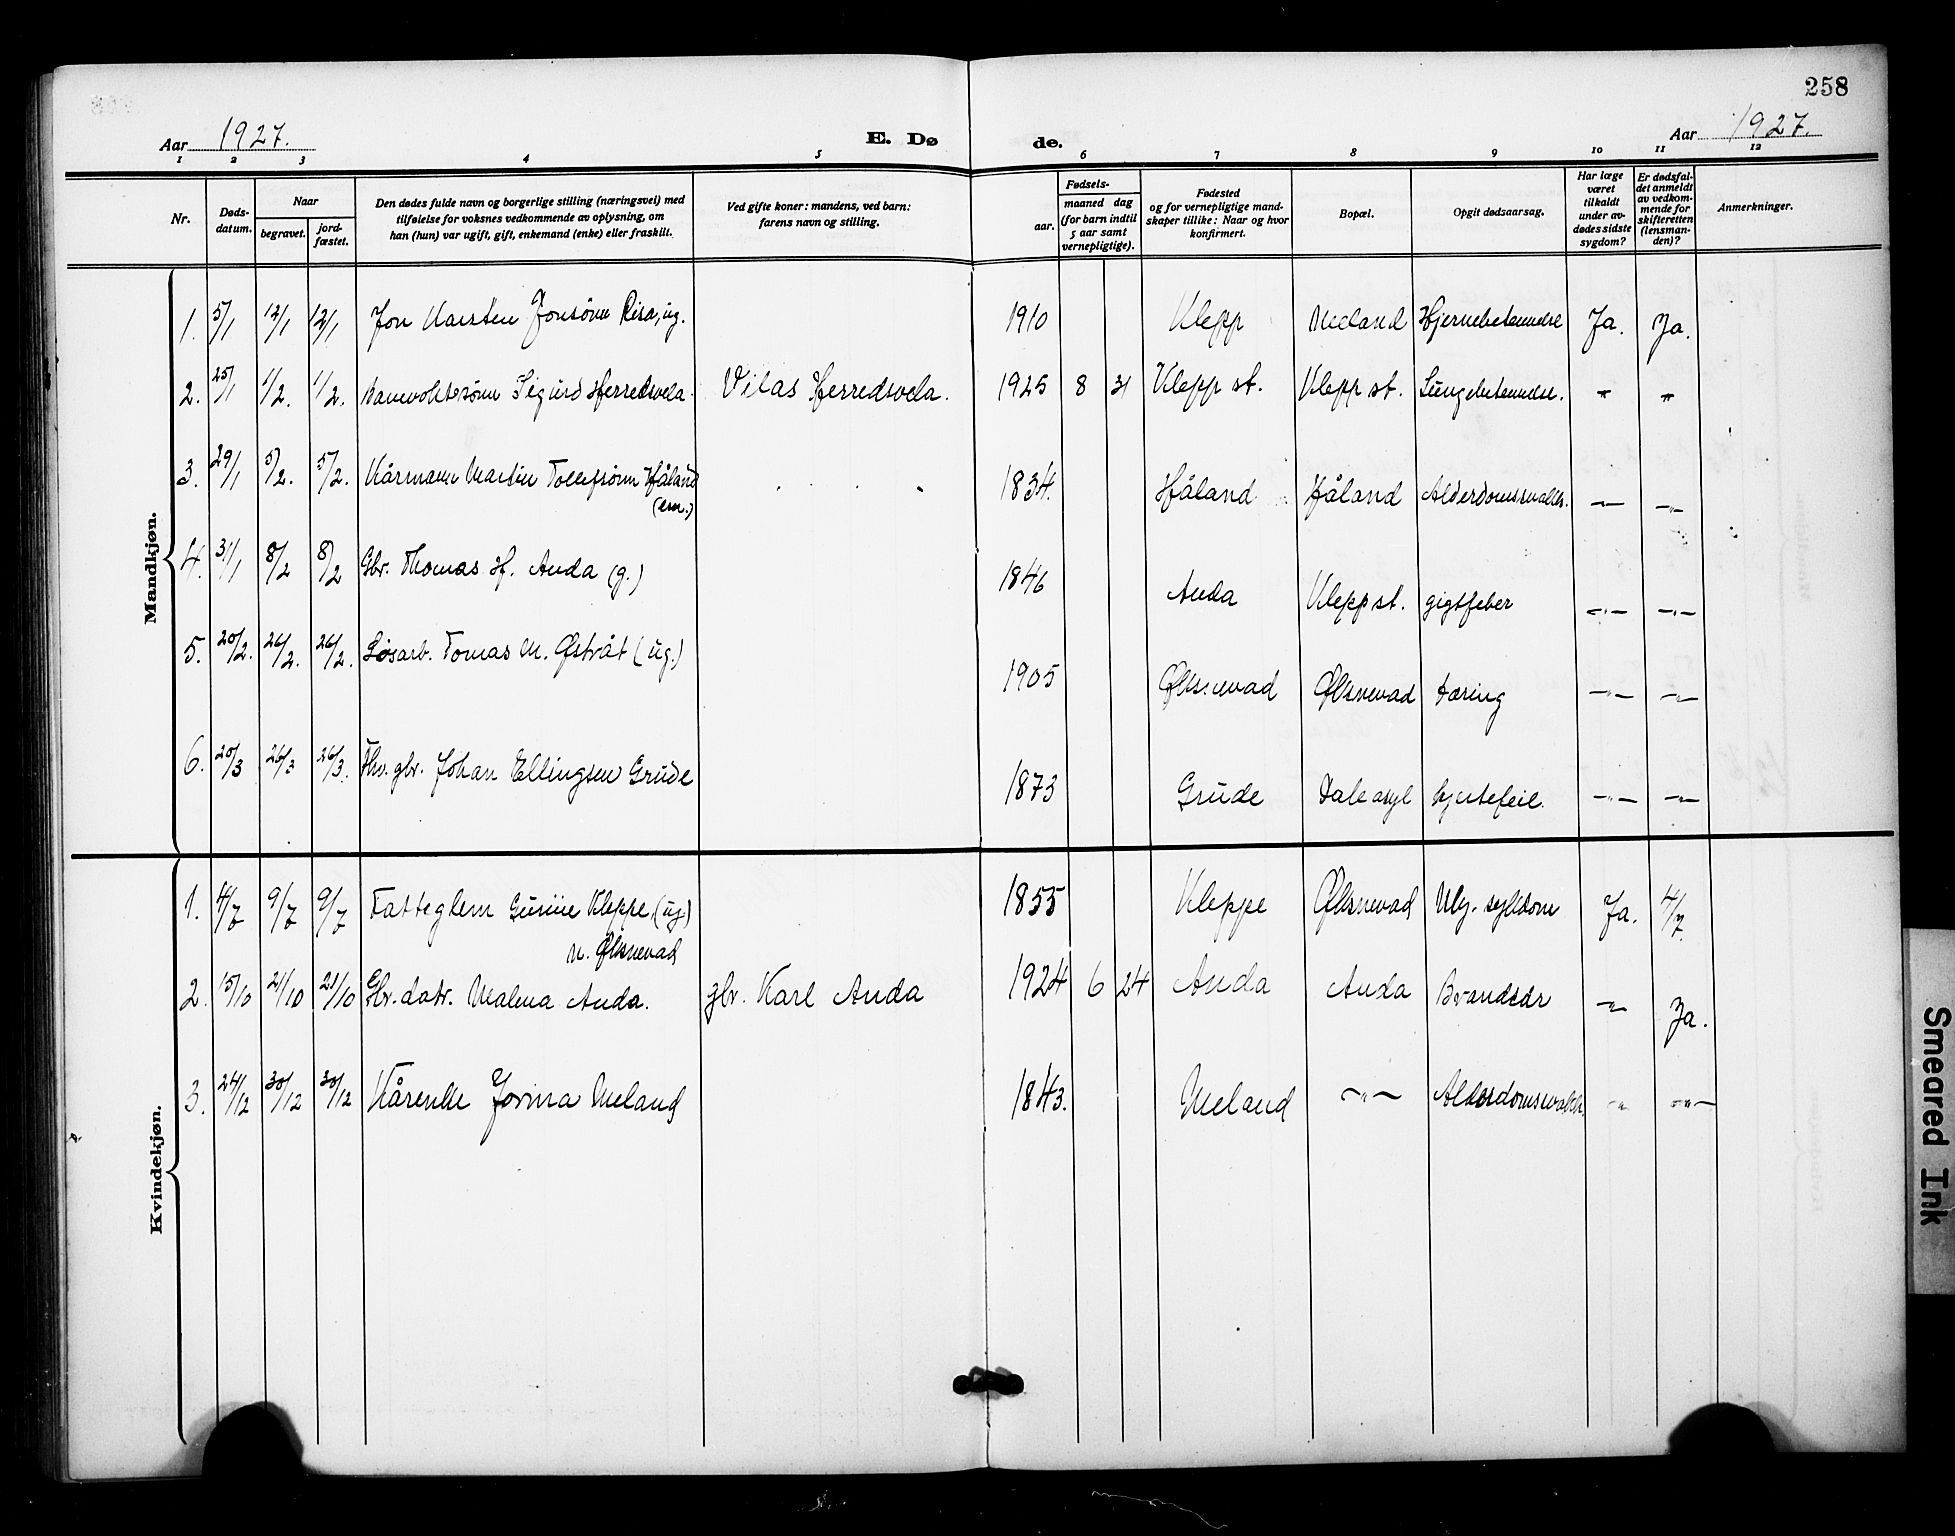 258
Aar 1927.
E. Dø de.
Aar 1927.
1 2 3 4 5 6 7 8 9 10 11 12
Nr. Døds-datum. Naar begravet. jord-fæstet. Den dødes fulde navn og borgerlige stilling (næringsvei) med tilføielse for voksnes vedkommende av oplysning, om han (hun) var ugift, gift, enkemand (enke) eller fraskilt. Ved gifte koner: mandens, ved barn: farens navn og stilling. Fødsels- aar. maaned dag (for barn indtil 5 aar samt vernepligtige). Fødested og for vernepligtige mand-skaper tillike: Naar og hvor konfirmert. Bopæl. Opgit dødsaarsag. Har læge været tilkaldt under av-dødes sidste sygdom? Er dødsfal-det anmeldt av vedkom-mende for skifteretten (lensman-den)? Anmerkninger.
Mandkjøn.
1. 5/1 12/1 12/1 Jon Karsten Jonsönn Risa, ug. 1910 Klepp Meland Hjernebetennelse Ja. Ja.
2. 25/1 1/2. 1/2. Sigurd Herredsvela Vilas Herredsvela. 1925 8 31 Klepp st. Klepp st. Lungebetennelse. " "
3. 29/1 5/2. 5/2. Kårmann Martin Tollefsönn Håland (em.) 1834. Håland Håland Alderdomssvakh. —"— —"—
4. 31/1 8/2 8/2 Gbr. Thomas H. Anda (g.) 1846 Anda Klepp st. gigtfeber —"— —"—
5. 20/2. 26/2. 26/2. Løsarb. Tomas M. Østråt (ug.) 1905 Øksnevad Øksnevad tæring —"— —"—
6. 20/3 26/3 26/3. Fhv. gbr. Johan Ellingsen Grude 1873 Grude hjertefeil. —"— —"—
Kvindekjøn.
1. 4/7 9/7 9/7 Fatteglem Gurine Kleppe, (ug.) 1855 Kleppe Øksnevad Ja. 4/7.
n. Øksnevad
2. 15/10 21/10 21/10 Gbr. datr. Malena Anda. gbr. Karl Anda 1924 6 24 Anda Anda Brandsår " Ja.
3. 24/12 30/12 30/12 Kårenke Jorina Meland 1843. Meland —"— Alderdomssvakh. —"— —"—
Smeared Ink